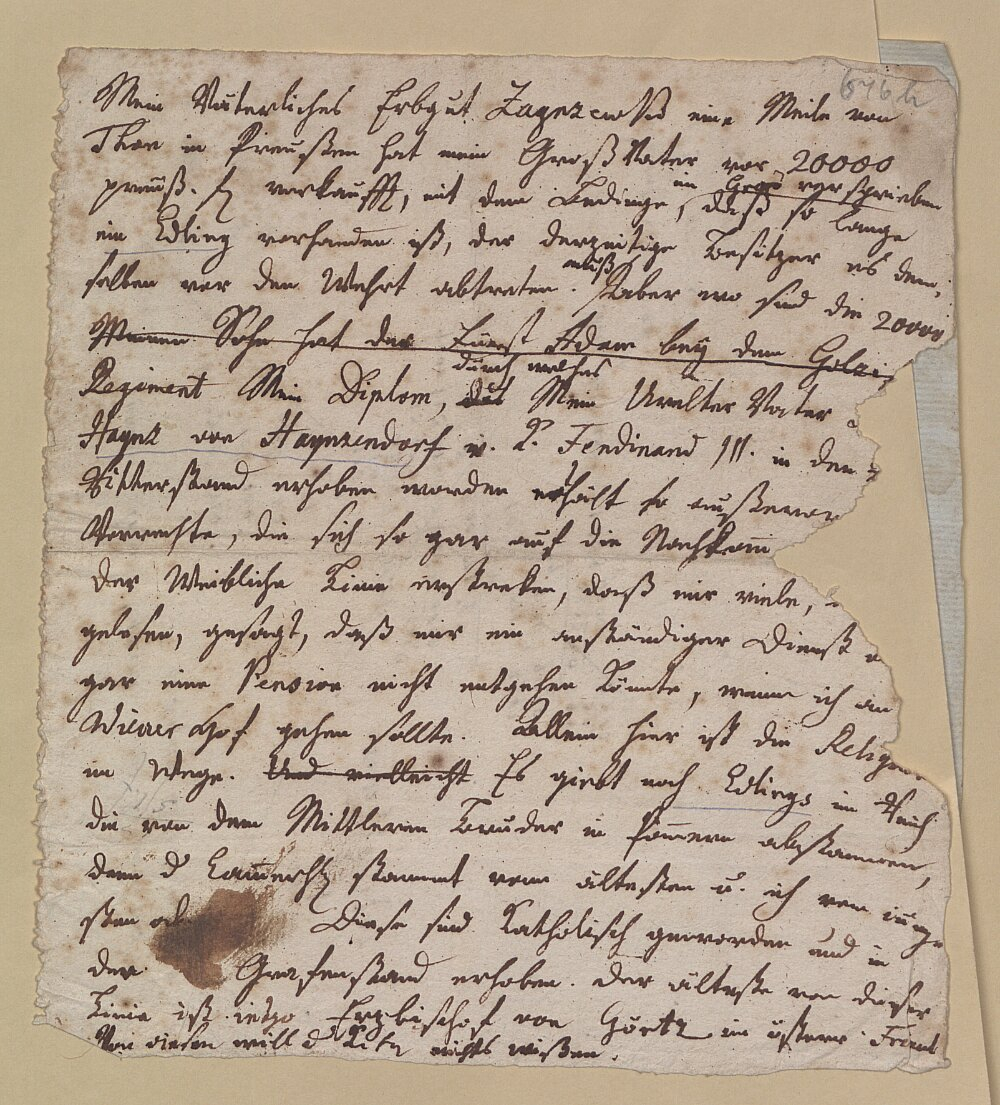 646 h
Mein Väterliches Erbgut eine Meile von
Thorn in Preußen hat mein Groß Vater vor 20000
im verschrieben
preuß. verkaufft, mit dem Bedinge, daß so lange
ein Edling vorhanden ist, der derzeitige Besitzer es dem,
muß
selben vor den Wehrt abtreten. Aber wo sind die 20000
Meinen Sohn hat der Fürst Adam bey dem
durch welches
Regiment Mein Diplom, Mein Uralter Vater
von Haynzendorf v. K. Ferdinand III. in den
Ritterstand erhoben worden erhält so außeror
Vorrechte, die sich so gar auf die Nachkom
der Weibliche Linie erstreken, daß mir viele,
gelesen, gesagt, daß mir ein anständiger Dienst
gar eine Pension nicht entgehen könnte, wenn ich an
Wiener Hof gehen sollte. Allein hier ist die Religion
im Wege. Und vielleicht Es giebt noch Edlings im Reich
die von dem Mittleren Bruder in Pommern abstammen,
denn d stammt vom ältesten u. ich vom jüng
sten ab Diese sind Katholisch geworden und in
den Grafenstand erhoben. der älteste von dieser
Linie ist jetzo Erzbischof von Görtz im österr. Friaul
Von diesen will d nichts wißen.